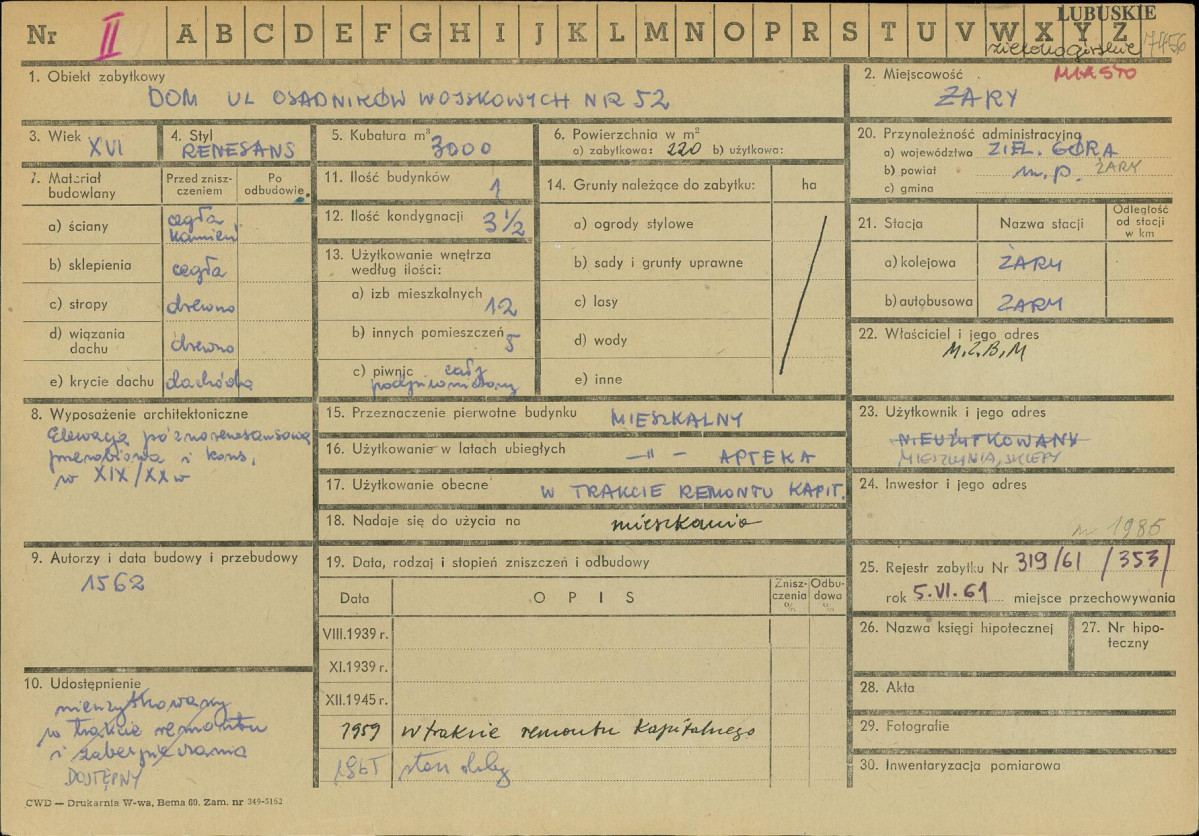 LUBUSKIE
Nr II A B C D E F G H I J K L M N O P R S T U V W X Y Z
zielonogórskie 7456
1. Obiekt zabytkowy
DOM UL OSADNIKÓW WOJSKOWYCH NR 52
2. Miejscowość MIASTO
ŻARY
3. Wiek XVI
4. Styl RENESANS
5. Kubatura m³ 3000
6. Powierzchnia w m²
a) zabytkowa: 220 b) użytkowa:
20. Przynależność administracyjna
a) województwo ZIEL. GÓRA
b) powiat m.p. ŻARY
c) gmina
7. Materiał budowlany
Przed zniszczeniem
Po odbudowie
a) ściany cegła kamień
b) sklepienia cegła
c) stropy drewno
d) wiązania dachu drewno
e) krycie dachu dachówka
11. Ilość budynków 1
12. Ilość kondygnacji 3 1/2
13. Użytkowanie wnętrza według ilości:
a) izb mieszkalnych 12
b) innych pomieszczeń 5
c) piwnic cały podpiwniczony
14. Grunty należące do zabytku: ha
a) ogrody stylowe
b) sady i grunty uprawne
c) lasy
d) wody
e) inne
21. Stacja Nazwa stacji Odległość od stacji w km
a) kolejowa ŻARY
b) autobusowa ŻARY
22. Właściciel i jego adres
M.Z.B.M
8. Wyposażenie architektoniczne
Elewacja późnorenesansowa
przerobiona i kons.
w XIX/XX w
15. Przeznaczenie pierwotne budynku MIESZKALNY
16. Użytkowanie w latach ubiegłych —"— APTEKA
17. Użytkowanie obecne W TRAKCIE REMONTU KAPIT.
18. Nadaje się do użycia na mieszkania
23. Użytkownik i jego adres
NIEUŻYTKOWANY
MIESZKANIA, SKLEPY
24. Inwestor i jego adres
1985
9. Autorzy i data budowy i przebudowy
1562
19. Data, rodzaj i stopień zniszczeń i odbudowy
Data OPIS Zniszczenia % Odbudowa %
VIII.1939 r.
XI.1939 r.
XII.1945 r.
1959 w trakcie remontu kapitalnego
stan dobry
25. Rejestr zabytku Nr 319/61 /353/
rok 5.VI.61 miejsce przechowywania
26. Nazwa księgi hipotecznej
27. Nr hipoteczny
28. Akta
29. Fotografie
30. Inwentaryzacja pomiarowa
10. Udostępnienie
nieużytkowany
w trakcie remontu
i zabezpieczania
DOSTĘPNY
CWD — Drukarnia W-wa, Bema 60. Zam. nr 349-5162